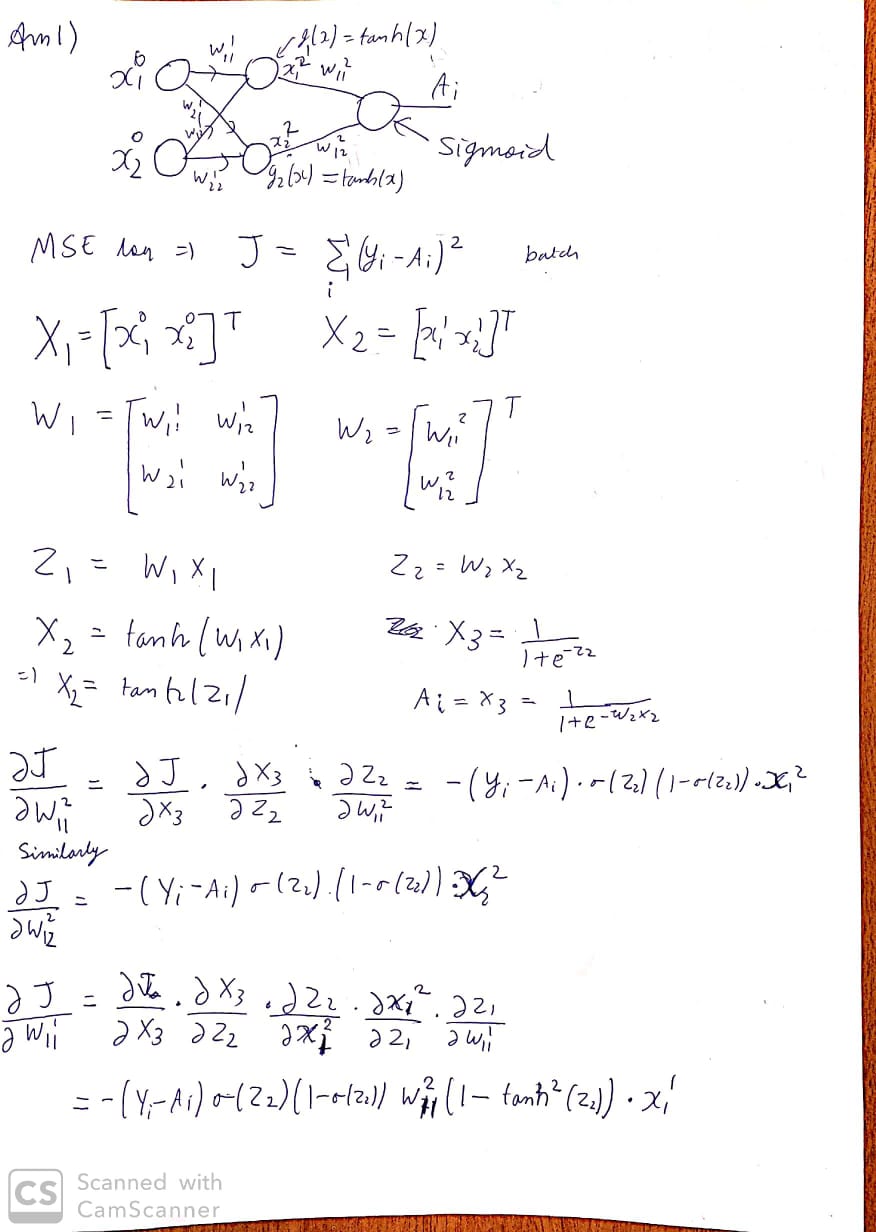 Ans 1)
g₁(x) = tanh(x)
x₁⁰ w₁₁¹ x₁² w₁₁² Aᵢ
w₂₁¹
w₁₂¹
x₂⁰ w₂₂¹ x₂² w₁₂² Sigmoid
g₂(x) = tanh(x)
MSE loss => J = Σᵢ (yᵢ - Aᵢ)² batch
X₁ = [x₁⁰ x₂⁰]ᵀ X₂ = [x₁¹ x₂¹]ᵀ
W₁ = [w₁₁¹ w₁₂¹ W₂ = [w₁₁² ]ᵀ
w₂₁¹ w₂₂¹] w₁₂²
Z₁ = W₁ X₁ Z₂ = W₂ X₂
X₂ = tanh(W₁ X₁) X₃ = 1/(1+e^(-Z₂))
=> X₂ = tanh(Z₁) Aᵢ = X₃ = 1/(1+e^(-W₂X₂))
∂J/∂w₁₁² = ∂J/∂X₃ . ∂X₃/∂Z₂ . ∂Z₂/∂w₁₁² = -(yᵢ - Aᵢ) . σ(Z₂)(1-σ(Z₂)) . x₁²
Similarly
∂J/∂w₁₂² = -(Yᵢ - Aᵢ) σ(Z₂) . (1-σ(Z₂)) . x₂²
∂J/∂w₁₁¹ = ∂J/∂X₃ . ∂X₃/∂Z₂ . ∂Z₂/∂x₁² . ∂x₁²/∂Z₁ . ∂Z₁/∂w₁₁¹
= -(Yᵢ - Aᵢ) σ(Z₂)(1-σ(Z₂)) w₁₁² (1 - tanh²(Z₂)) . x₁¹
CS Scanned with
CamScanner